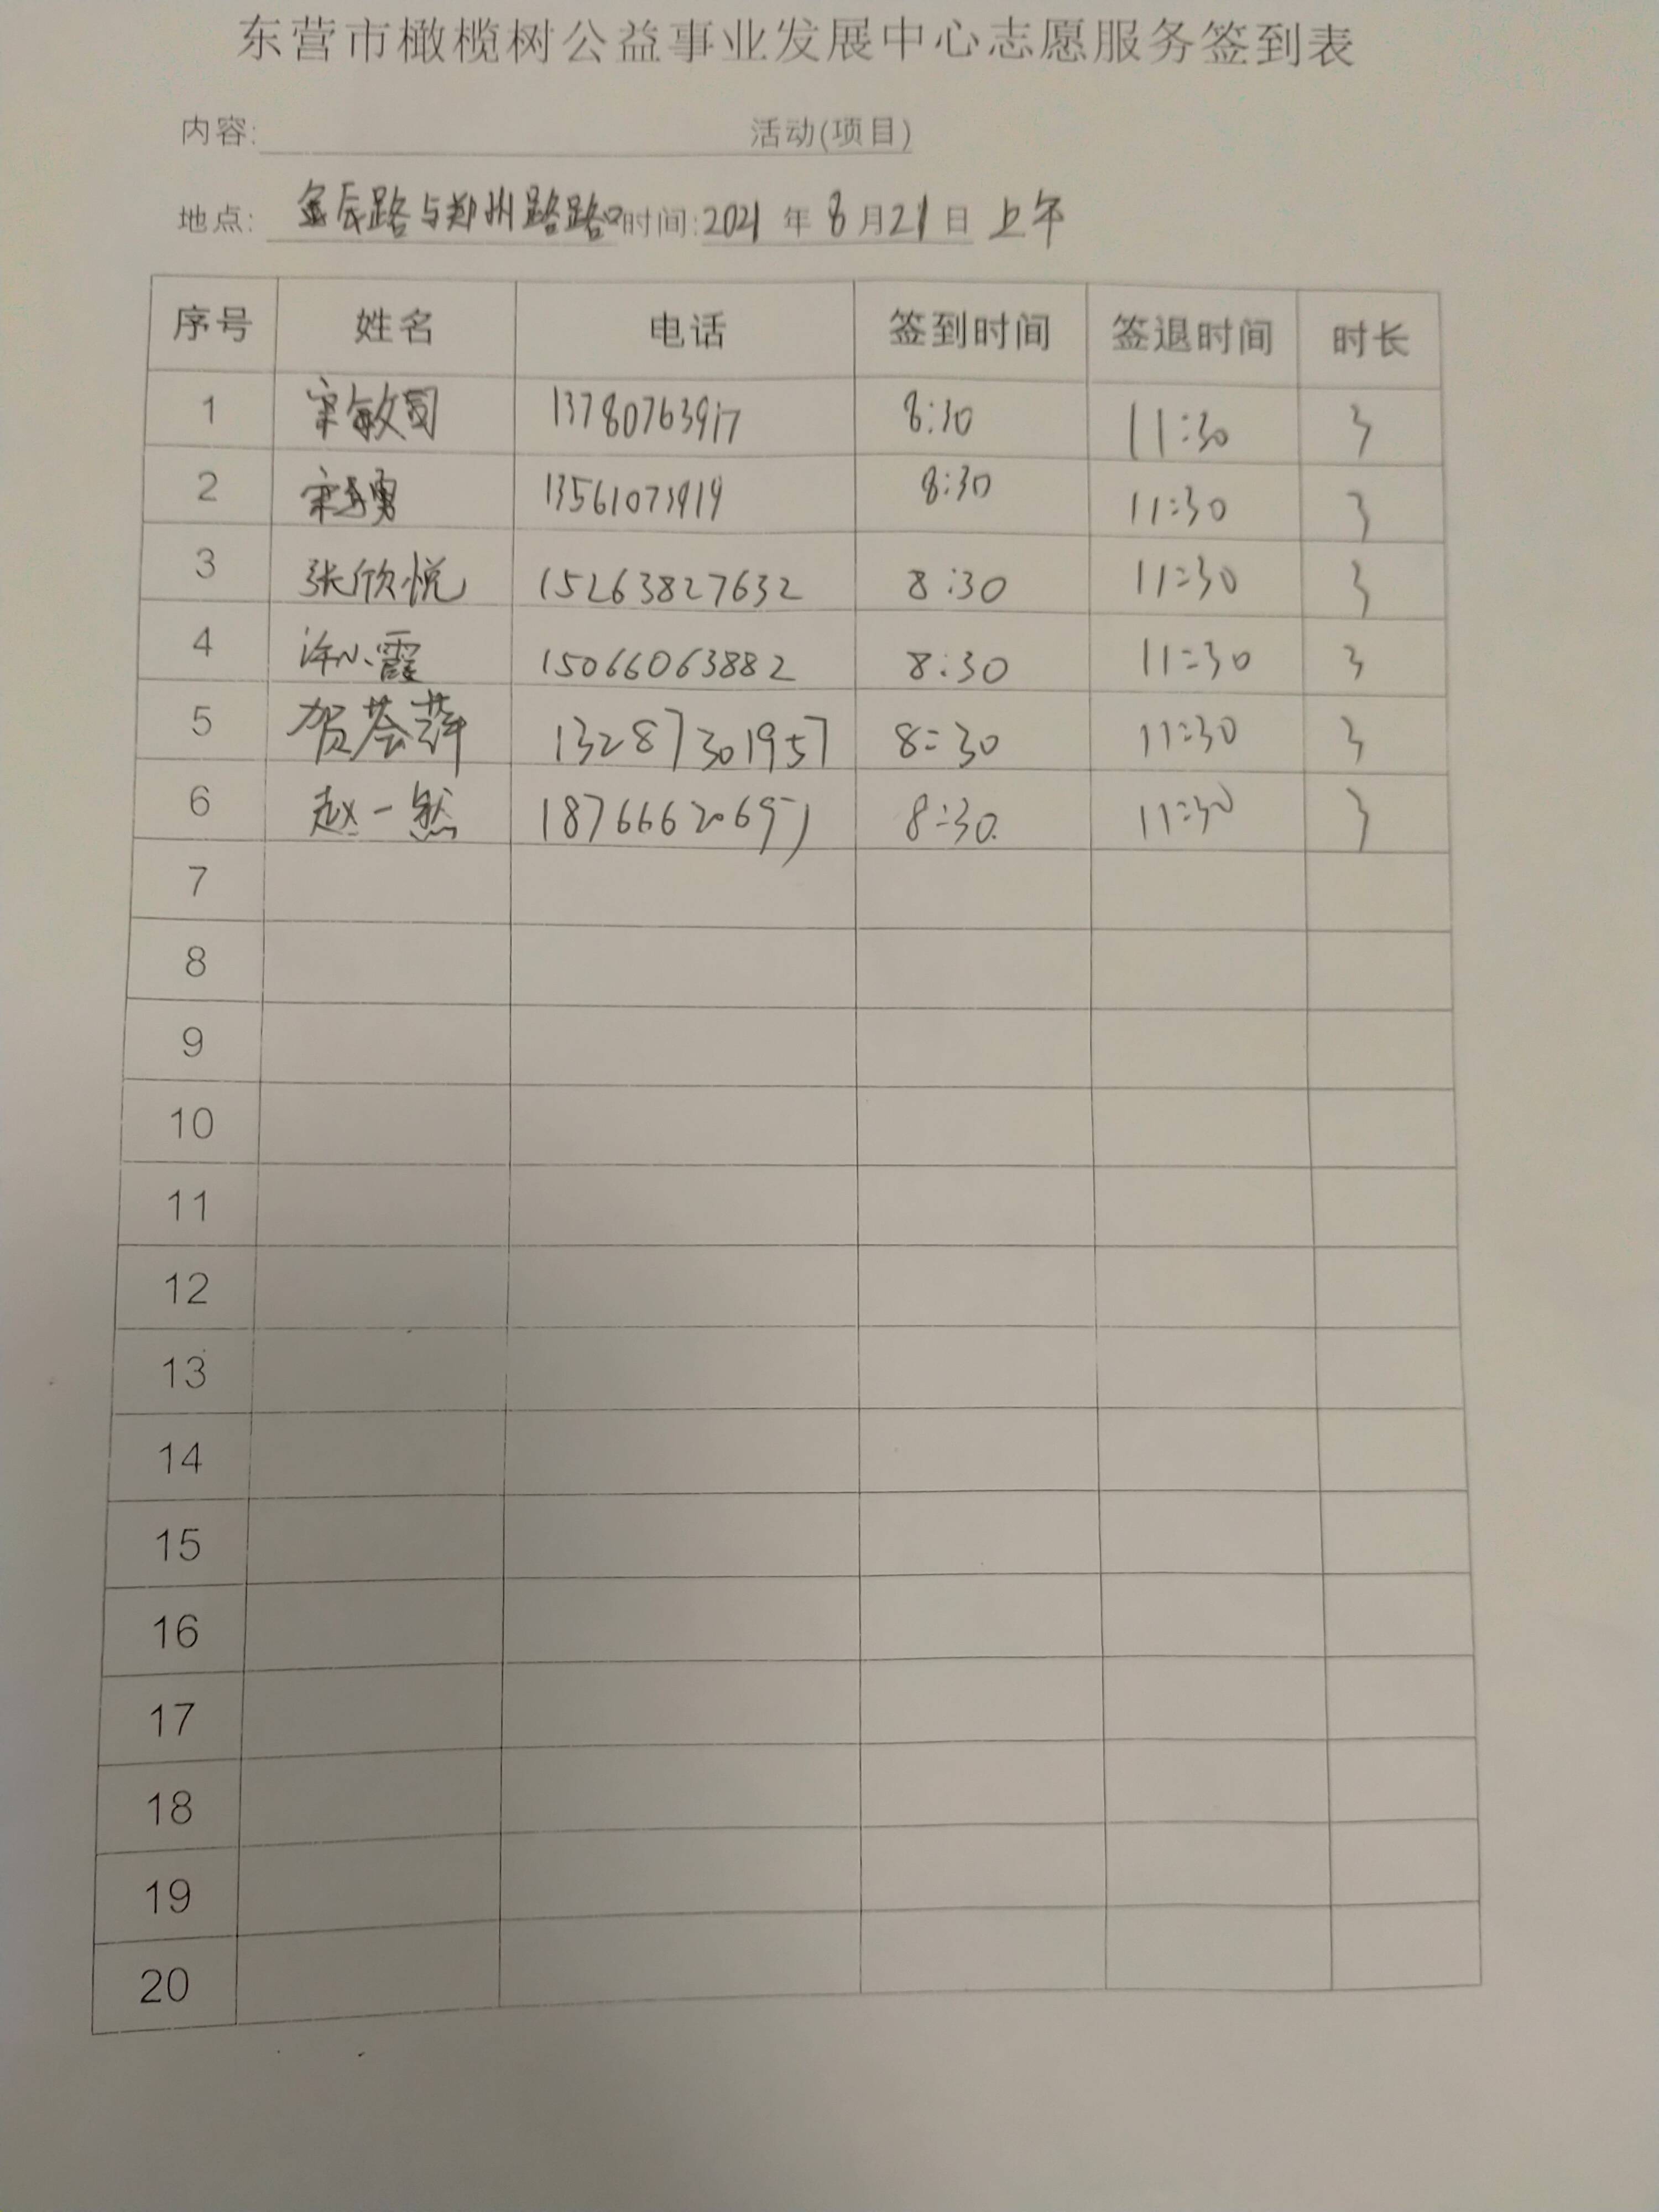 东营市橄榄树公益事业发展中心志愿服务签到表
内容: 活动(项目)
地点: 金辰路与郑州路路口 时间: 2021 年 8 月 21 日 上午
序号 姓名 电话 签到时间 签退时间 时长
1 宋敏 13780763917 8:30 11:30 3
2 13561073919 8:30 11:30 3
3 张欣悦 15263827632 8:30 11:30 3
4 许小霞 15066063882 8:30 11:30 3
5 贺荟萍 13287301957 8:30 11:30 3
6 赵一然 8:30 11:30 3
7
8
9
10
11
12
13
14
15
16
17
18
19
20